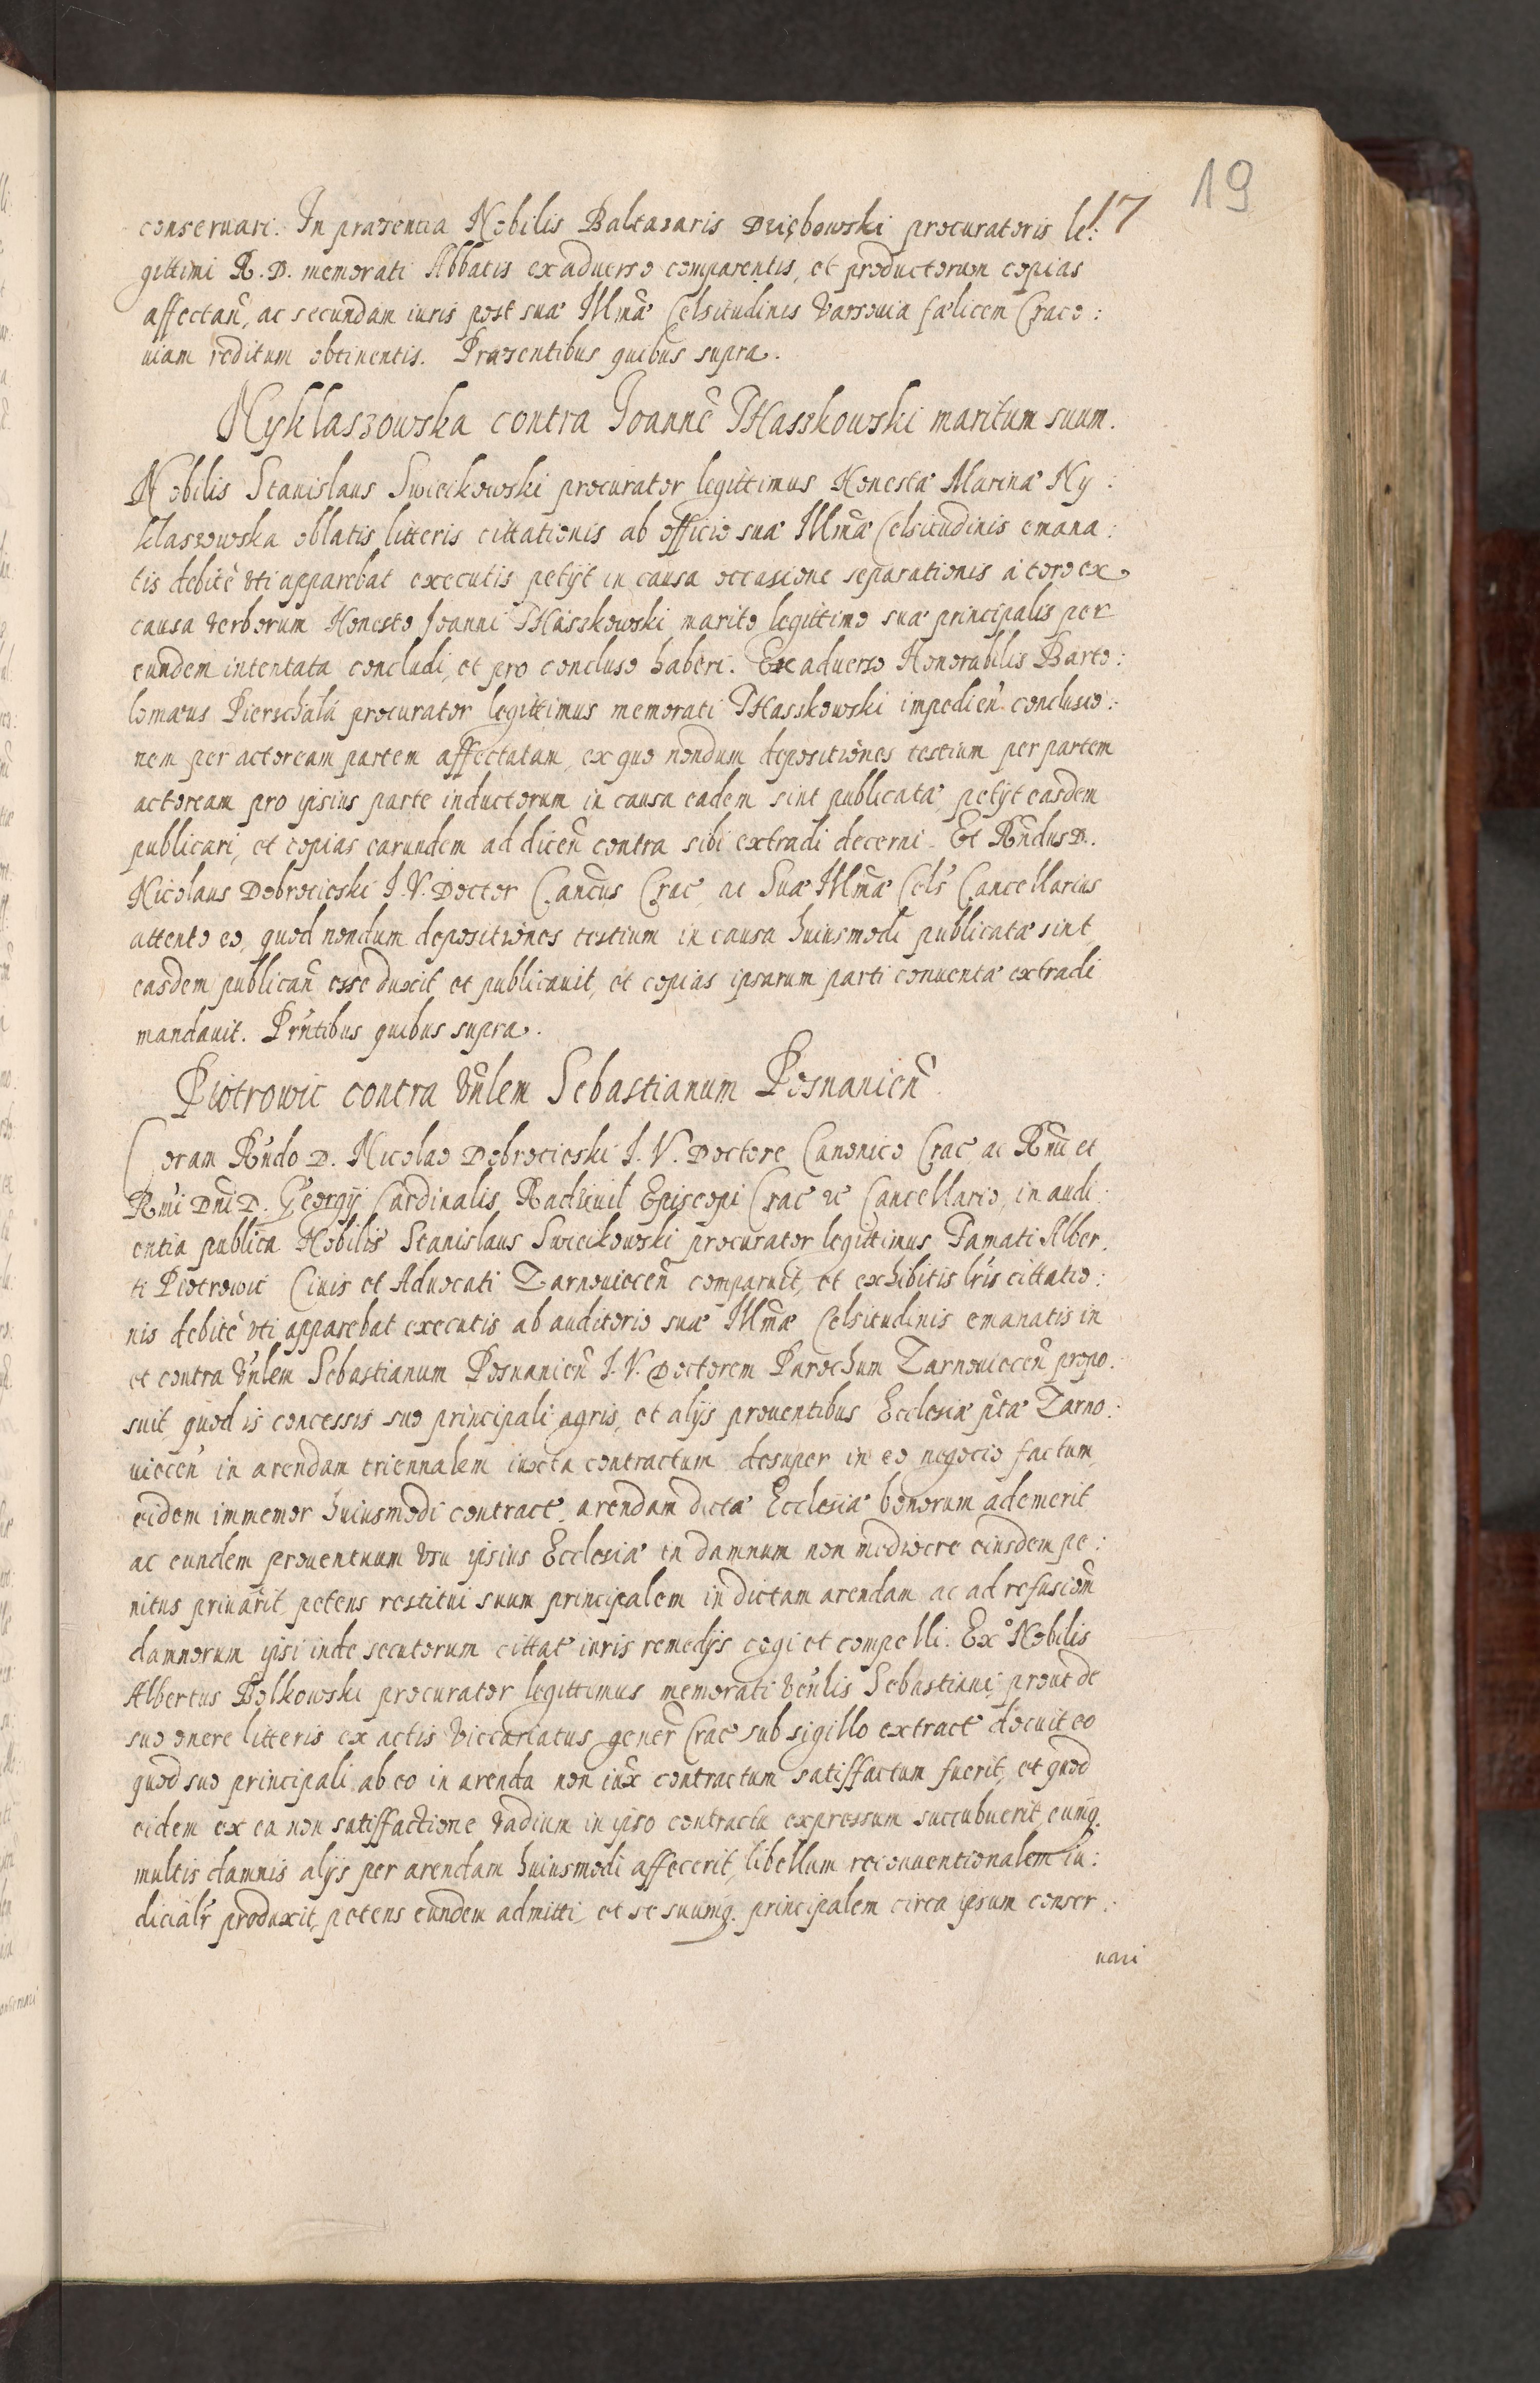 19
17
conseruari. In præsencia Nobilis Baltazaris Dziębowski procuratoris le:
gittimi R. D. memorati Abbatis ex aduerso comparentis, et productorum copias
affectañ, ac secundam iuris post suæ Illmæ Celsitudinis Varsouia fœlicem Craco:
uiam reditum obtinentis. Præsentibus quibus supra.
Nyklaszowska contra Joannē Thasskowski maritum suum.
Nobilis Stanislaus Swiecikowski procurator legittimus Honestæ Marinæ Ny:
klaszowska oblatis litteris cittationis ab officio suæ Illmæ Celsitudinis emana:
tis debitè vti apparebat executis petijt in causa occasione separationis à toro ex
causa verberum Honesto Joanni Thasskowski marito legittimo suæ principalis per
eundem intentata concludi, et pro concluso haberi. Ex aduerso Honorabilis Barto:
lomæus Pierschała procurator legittimus memorati Thasskowski impedień conclusio:
nem per actoream partem affectatam, ex quo nondum depositiones testium per partem
actoream pro ipsius parte inductorum in causa eadem sint publicatæ, petijt easdem
publicari, et copias earundem ad diceñ contra sibi extradi decerni. Et Rñdus D.
Nicolaus Dobrocieski J. V. Doctor Cancus Crac, ac Suæ Illmæ Cels Cancellarius
attento eo, quod nondum depositiones testium in causa huiusmodi publicatæ sint,
easdem publicañ esse duxit, et publicauit, et copias ipsarum parti conuentæ extradi
mandauit. Prñtibus quibus supra.
Piotrowic contra Vñlem Sebastianum Posnanień
Coram Rñdo D. Nicolao Dobrocieski J. V. Doctore Canonico Crac, ac Illmi et
Rmi Dni D. Georgij Cardinalis Radziuil Episcopi Crac etc Cancellario, in audi:
entia publica Nobilis Stanislaus Swiecikowski procurator legittimus Famati Alber:
ti Piotrowic Ciuis et Aduocati Zarnouieceñ comparuit, et exhibitis lris cittatio:
nis debitè vti apparebat executis ab auditorio suæ Illmæ Celsitudinis emanatis in
et contra Vñlem Sebastianum Posnanień J. V. Doctorem Parochum Zarnouieceñ propo:
suit, quod is concessis suo principali agris, et alijs prouentibus Ecclesiæ ptæ Zarno:
uieceñ in arendam triennalem iuxta contractum desuper in eo negocio factum,
eidem immemor huiusmodi contract, arendam dictæ Ecclesiæ bonorum ademerit,
ac eundem prouentuum vsu ipsius Ecclesiæ in damnum non mediocre eiusdem pe:
nitus priuarit, petens restitui suum principalem in dictam arendam, ac ad refusioñ
damnorum ipsi inde secutorum cittat iuris remedijs cogi et compelli. Exº Nobilis
Albertus Bolkowski procurator legittimus memorati Veñlis Sebastiani, prout de
suo onere litteris ex actis Viccariatus gener Crac sub sigillo extract docuit, eo
quod suo principali ab eo in arenda non iux contractum satisffactum fuerit, et quod
eidem ex ea non satisffactione vadium in ipso contractu expressum succubuerit, eumq.
multis damnis alijs per arendam huiusmodi affecerit, libellum reconuentionalem iu:
dicialr produxit, petens eundem admitti, et se suumq. principalem circa ipsum conser:
uari